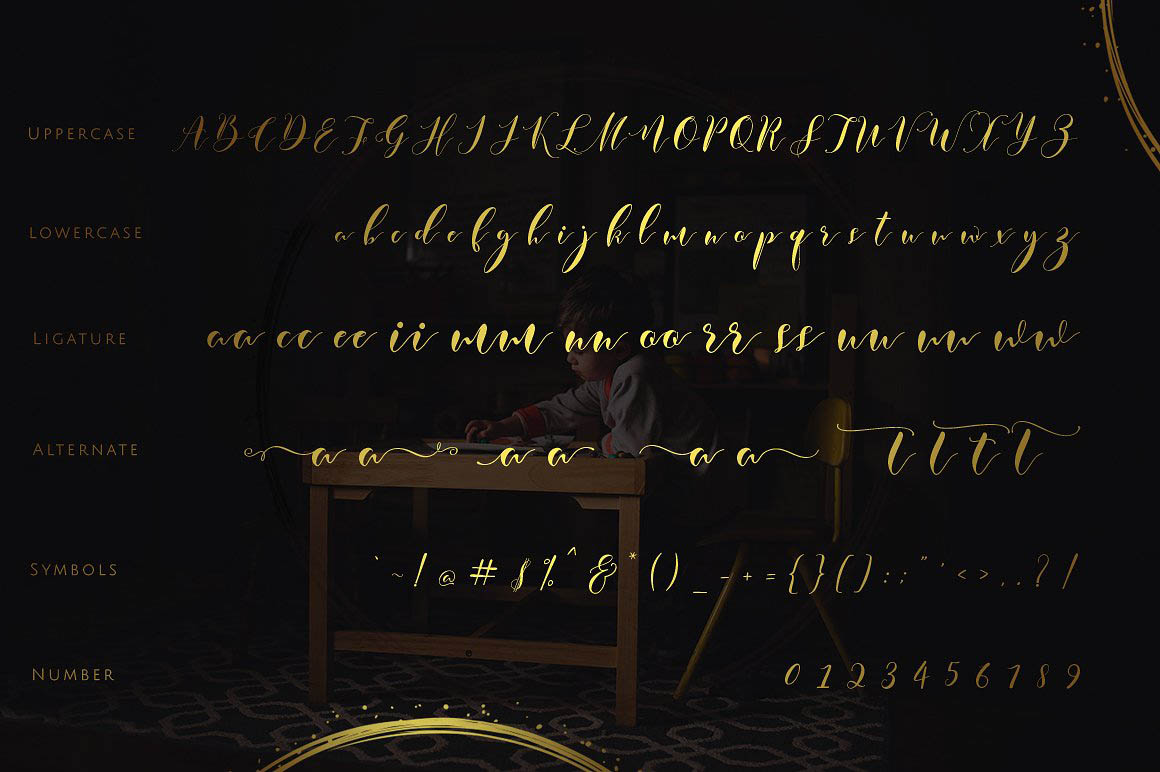 UPPERCASE A B C D E F G H I J K L M N O P Q R S T U V W X Y Z
LOWERCASE a b c d e f g h i j k l m n o p q r s t u v w x y z
LIGATURE aa cc ee ii mm nn oo rr ss uu vv ww
ALTERNATE a a a a a a t t t t
SYMBOLS ` ~ ! @ # $ % ^ & * ( ) _ - + = { } ( ) : ; " ' < > , . ? /
NUMBER 0 1 2 3 4 5 6 7 8 9